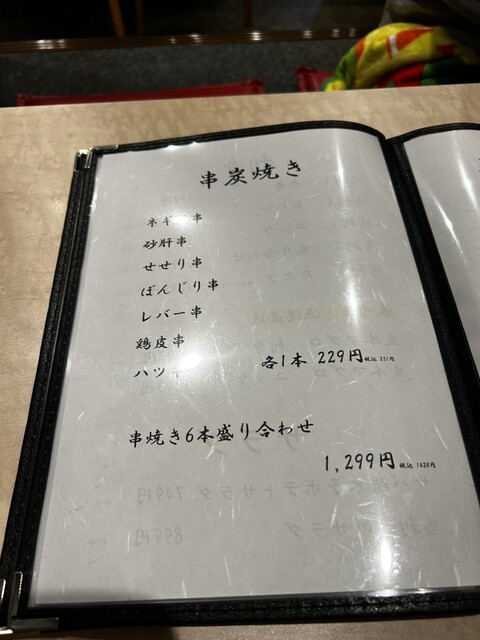 串炭焼き
ネギ 串
砂肝串
せせり串
ぼんじり串
レバー串
鶏皮串
ハツ
各1本 229円 税込 251円
串焼き6本盛り合わせ
1,299円 税込 1428円